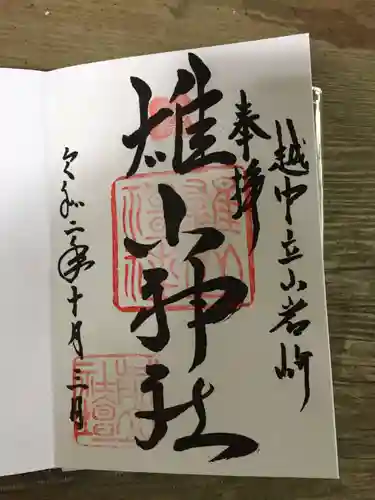 越中立山岩峅
奉拝
雄山神社
令和二年十月三日